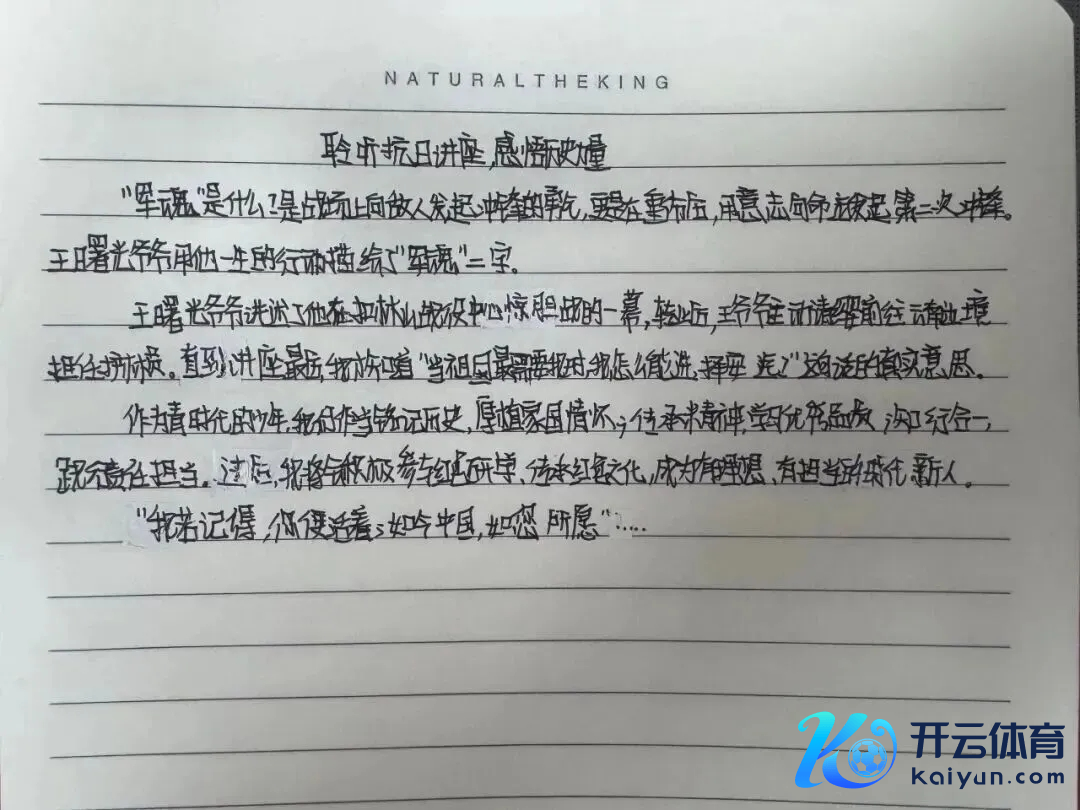 NATURALTHEKING
聆听抗日讲座,感悟历史力量
"军魂"是什么?是战场上向敌人发起冲锋的勇气,更是在重伤后,用意志向命运发起第二次冲锋。
王曙光爷爷用他一生的行动描绘了"军魂"二字。
王曙光爷爷讲述了他在扣林山战役中心惊胆战的一幕,转业后,王爷爷主动请缨前往云南边境
担任排。直到讲座最后,我才知道"当祖国最需要我时,我怎么能选择安逸了"这句话的真实意思。
作为青时代的少年,我们作当铭记历史,厚植家国情怀;传承精神,学习优秀品质,知行合一,
践行责任担当。过后,我将会积极参与红色研学、传承红色文化,成为有理想、有担当的时代新人。
"我若记得,你便活着;如今中国,如您所愿".....
开云体育
kaiyun.com